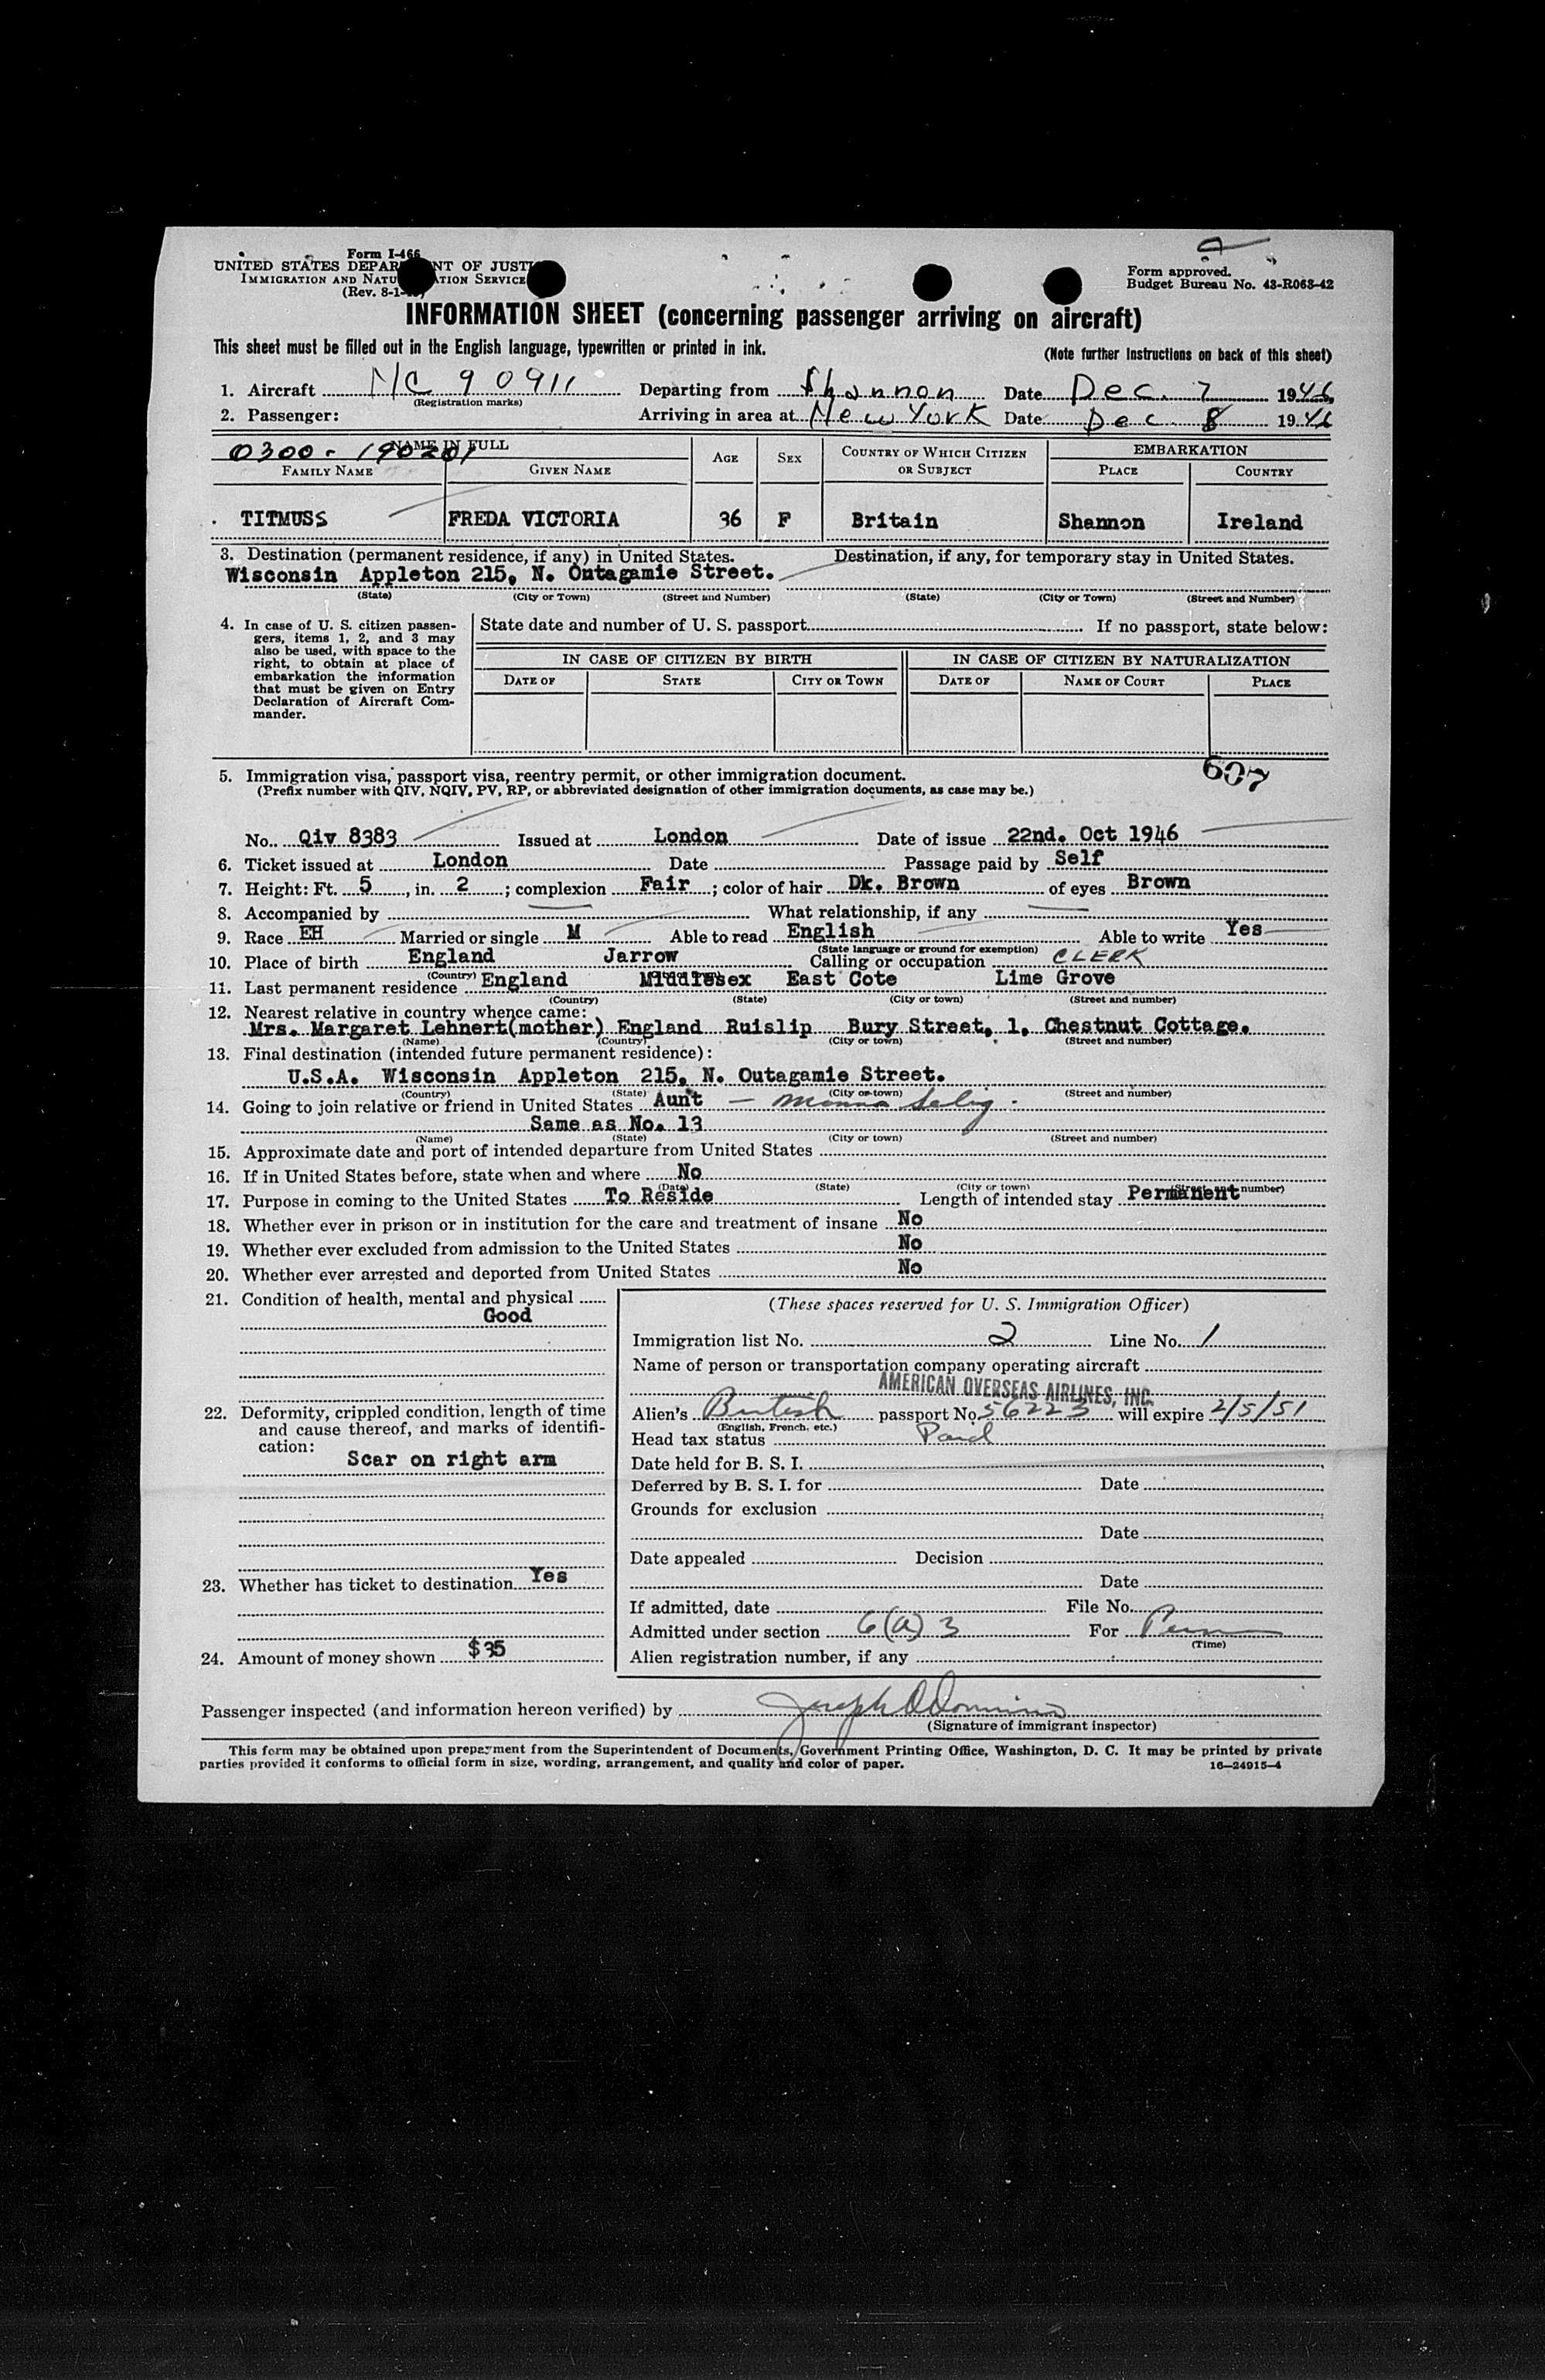 Form I-466
UNITED STATES DEPAR NT OF JUST
IMMIGRATION AND NATU ATION SERVICE
(Rev. 8-1-
Form approved.
Budget Bureau No. 43-R063-42
INFORMATION SHEET (concerning passenger arriving on aircraft)
This sheet must be filled out in the English language, typewritten or printed in ink.
(Note further instructions on back of this sheet)
1. Aircraft NC 90911 Departing from Shannon Date Dec. 7 1946
(Registration marks)
2. Passenger: Arriving in area at New York Date Dec 8 1946
NAME IN FULL
0300 - 190201
FAMILY NAME GIVEN NAME AGE SEX COUNTRY OF WHICH CITIZEN OR SUBJECT EMBARKATION PLACE COUNTRY
TITMUSS FREDA VICTORIA 36 F Britain Shannon Ireland
3. Destination (permanent residence, if any) in United States. Destination, if any, for temporary stay in United States.
Wisconsin Appleton 215, N. Outagamie Street.
(State) (City or Town) (Street and Number) (State) (City or Town) (Street and Number)
4. In case of U. S. citizen passen-
gers, items 1, 2, and 3 may
also be used, with space to the
right, to obtain at place of
embarkation the information
that must be given on Entry
Declaration of Aircraft Com-
mander.
State date and number of U. S. passport If no passport, state below:
IN CASE OF CITIZEN BY BIRTH IN CASE OF CITIZEN BY NATURALIZATION
DATE OF STATE CITY OR TOWN DATE OF NAME OF COURT PLACE
607
5. Immigration visa, passport visa, reentry permit, or other immigration document.
(Prefix number with QIV, NQIV, PV, RP, or abbreviated designation of other immigration documents, as case may be.)
No. Qiv 8383 Issued at London Date of issue 22nd. Oct 1946
6. Ticket issued at London Date Passage paid by Self
7. Height: Ft. 5, in. 2; complexion Fair; color of hair Dk. Brown of eyes Brown
8. Accompanied by What relationship, if any
9. Race EH Married or single M Able to read English Able to write Yes
(State language or ground for exemption)
10. Place of birth England Jarrow Calling or occupation CLERK
(Country)
11. Last permanent residence England Middlesex East Cote Lime Grove
(Country) (State) (City or town) (Street and number)
12. Nearest relative in country whence came:
Mrs. Margaret Lehnert(mother) England Ruislip Bury Street, 1, Chestnut Cottage.
(Name) (Country) (City or town) (Street and number)
13. Final destination (intended future permanent residence):
U.S.A. Wisconsin Appleton 215, N. Outagamie Street.
(Country) (State) (City or town) (Street and number)
14. Going to join relative or friend in United States Aunt —
Same as No. 13
(Name) (State) (City or town) (Street and number)
15. Approximate date and port of intended departure from United States
16. If in United States before, state when and where No
(Date) (State) (City or town) (Street and number)
17. Purpose in coming to the United States To Reside Length of intended stay Permanent
18. Whether ever in prison or in institution for the care and treatment of insane No
19. Whether ever excluded from admission to the United States No
20. Whether ever arrested and deported from United States No
21. Condition of health, mental and physical
Good
22. Deformity, crippled condition, length of time
and cause thereof, and marks of identifi-
cation:
Scar on right arm
23. Whether has ticket to destination Yes
24. Amount of money shown $35
(These spaces reserved for U. S. Immigration Officer)
Immigration list No. 2 Line No. 1
Name of person or transportation company operating aircraft
AMERICAN OVERSEAS AIRLINES, INC.
Alien's British passport No. 56223 will expire 2/5/51
(English, French, etc.)
Head tax status Paid
Date held for B. S. I.
Deferred by B. S. I. for Date
Grounds for exclusion
Date
Date appealed Decision
Date
If admitted, date File No.
Admitted under section 6(a) 3 For Perm
(Time)
Alien registration number, if any
Passenger inspected (and information hereon verified) by
(Signature of immigrant inspector)
This form may be obtained upon prepayment from the Superintendent of Documents, Government Printing Office, Washington, D. C. It may be printed by private
parties provided it conforms to official form in size, wording, arrangement, and quality and color of paper.
16—24915-4